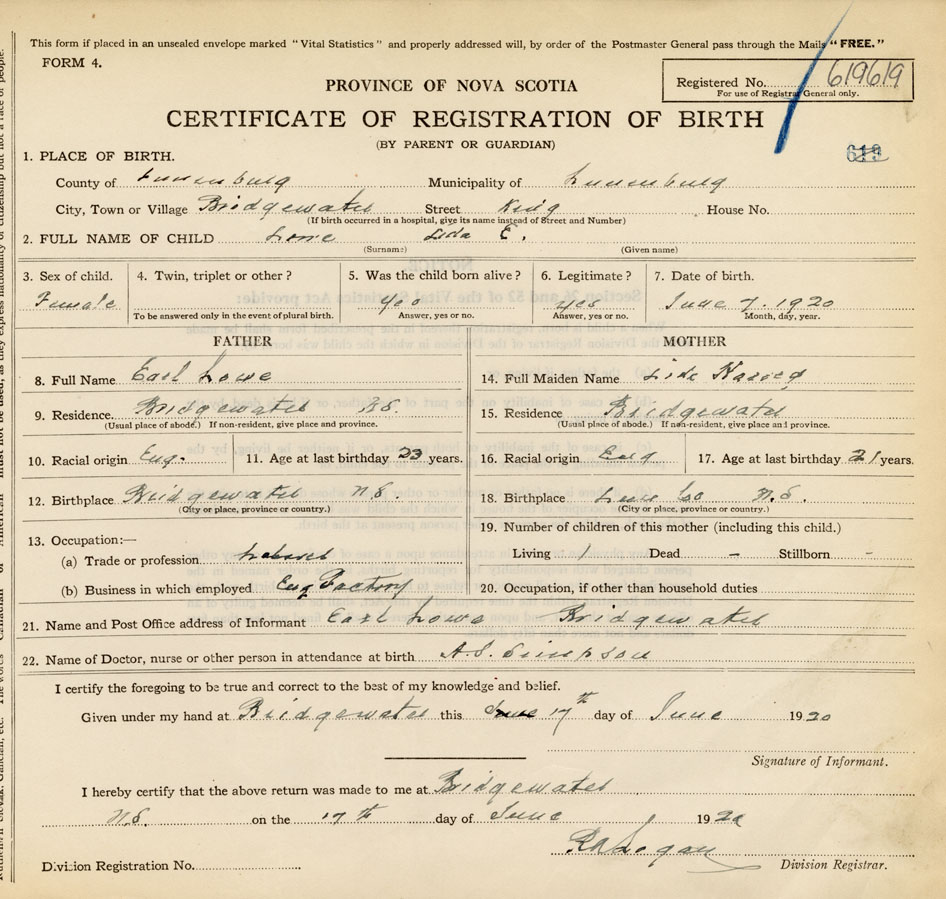 This form if placed in an unsealed envelope marked "Vital Statistics" and properly addressed will, by order of the Postmaster General pass through the Mails "FREE."
FORM 4.
Registered No. 619619
For use of Registrar General only.
PROVINCE OF NOVA SCOTIA
CERTIFICATE OF REGISTRATION OF BIRTH
(BY PARENT OR GUARDIAN)
619
1. PLACE OF BIRTH.
County of Lunenburg Municipality of Lunenburg
City, Town or Village Bridgewater Street King House No.
(If birth occurred in a hospital, give its name instead of Street and Number)
2. FULL NAME OF CHILD Lowe Lida E.
(Surname) (Given name)
3. Sex of child. 4. Twin, triplet or other? 5. Was the child born alive? 6. Legitimate? 7. Date of birth.
Female yes yes June 7. 1920
To be answered only in the event of plural birth. Answer, yes or no. Answer, yes or no. Month, day, year.
FATHER MOTHER
8. Full Name Earl Lowe 14. Full Maiden Name Lida
9. Residence. Bridgewater N.S. 15. Residence Bridgewater
(Usual place of abode.) If non-resident, give place and province. (Usual place of abode.) If non-resident, give place and province.
10. Racial origin Eng. 11. Age at last birthday 23 years. 16. Racial origin Eng 17. Age at last birthday 21 years.
12. Birthplace Bridgewater N.S. 18. Birthplace Lune Co N.S.
(City or place, province or country.) (City or place, province or country.)
13. Occupation:— 19. Number of children of this mother (including this child.)
(a) Trade or profession Laborer Living 1 Dead — Stillborn -
(b) Business in which employed Eng Factory 20. Occupation, if other than household duties
21. Name and Post Office address of Informant Earl Lowe Bridgewater
22. Name of Doctor, nurse or other person in attendance at birth A.S. Simpson
I certify the foregoing to be true and correct to the best of my knowledge and belief.
Given under my hand at Bridgewater this 17th day of June 1920
Signature of Informant.
I hereby certify that the above return was made to me at Bridgewater
N.S. on the 17th day of June 1920
Logan
Division Registration No. Division Registrar.